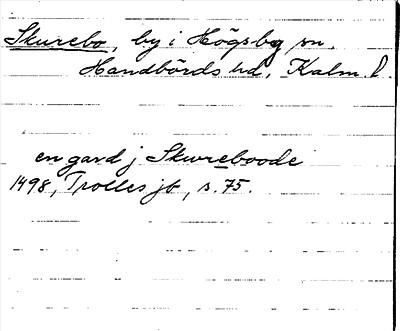 Skurebo, by i Högsby sn.
Handbörds hd, Kalm. l.
en gard j Skwreboode
1498, Trolles jb, s. 75.